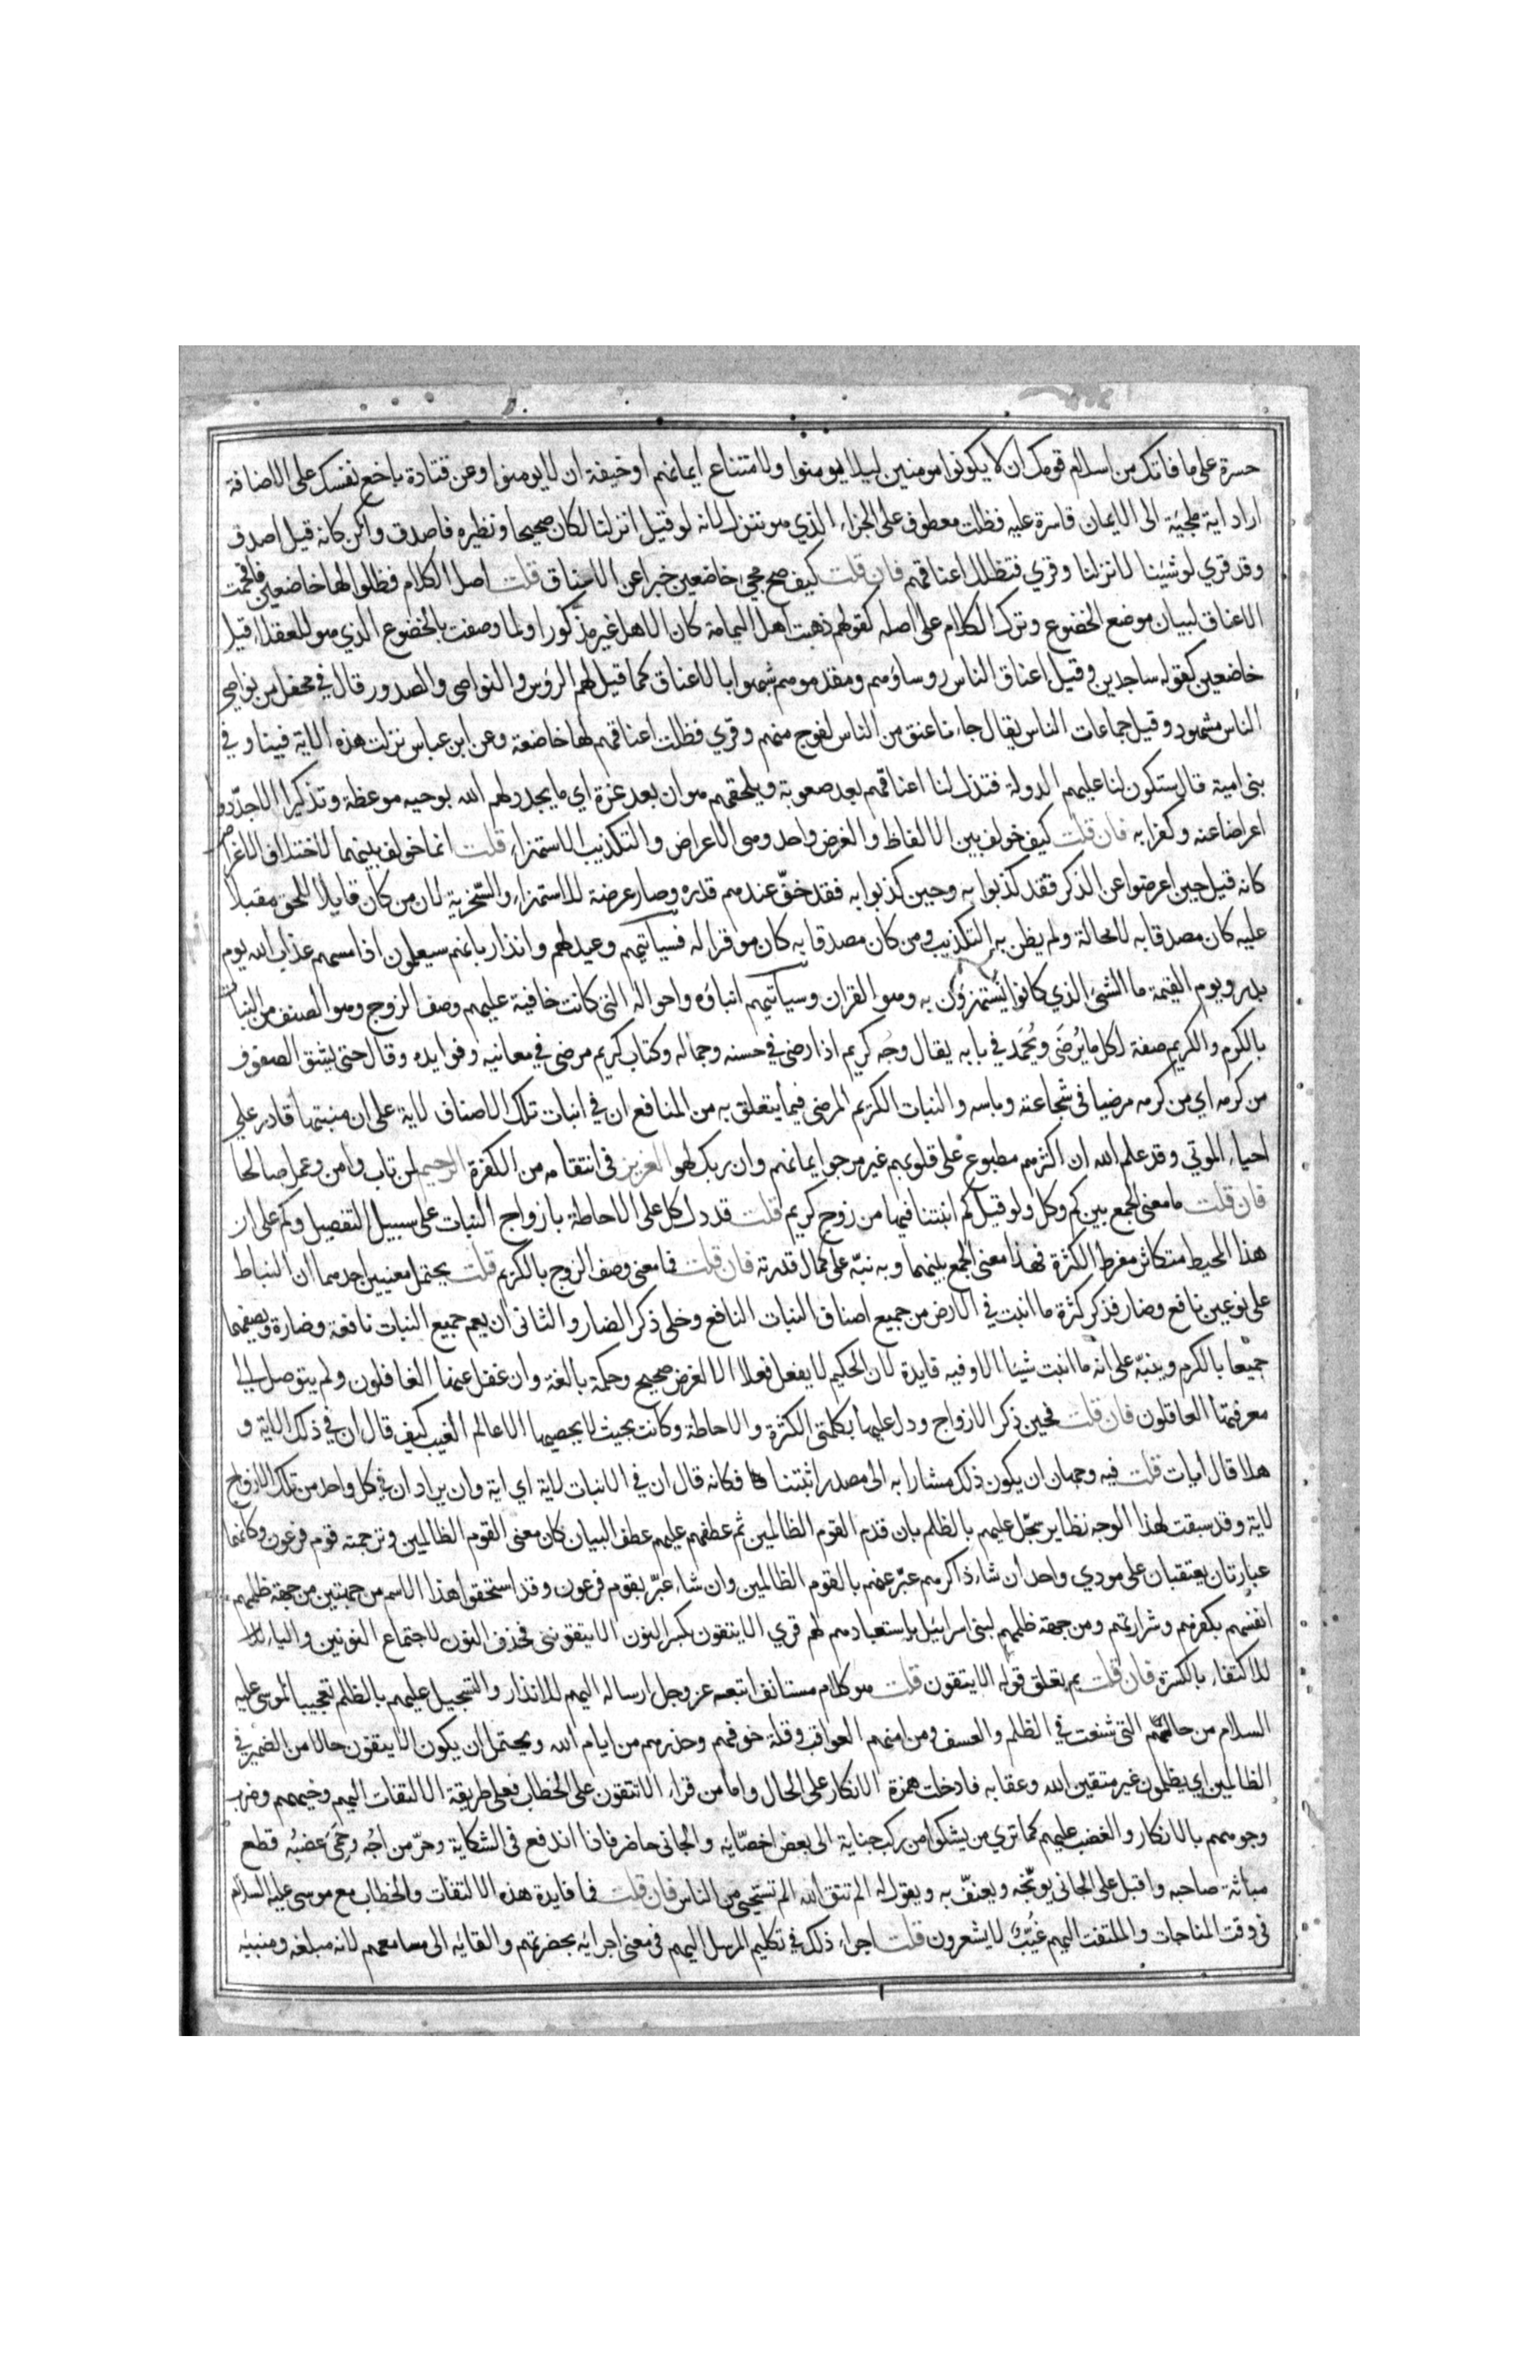 حسرة على ما فاتك من اسلام قومك ان لا يكونوا مومنين ليلا يومنوا ولامتناع ايمانهم او خيفة ان لا يومنوا وعن قتادة باخع نفسك على الاضافة
اراد اية ملجئة الى الايمان قاسرة عليه فظلت معطوف على الجزاء الذي هو ننزل لانه لو قيل انزلنا لكان صحيحا ونظيره فاصدق واكن كانه قيل اصدق
وقد قري لو شئنا لانزلنا وقري فتظلل اعناقهم فان قلت كيف صح مجيء خاضعين خبرا عن الاعناق قلت اصل الكلام فظلوا لها خاضعين فاقحمت
الاعناق لبيان موضع الخضوع وترك الكلام على اصله كقولهم ذهبت اهل اليمامة كان الاهل غير مذكور او لما وصفت بالخضوع الذي هو للعقلاء قيل
خاضعين كقوله ساجدين وقيل اعناق الناس روساؤهم ومقدموهم شبهوا بالاعناق كما قيل لهم الرؤس والنواصى والصدور قال في محفل من نواصي
الناس مشهود وقيل جماعات الناس يقال جاءنا عنق من الناس لفوج منهم وقري فظلت اعناقهم لها خاضعة وعن ابن عباس نزلت هذه الاية فينا وفي
بنى امية قال ستكون لنا عليهم الدولة فتذل لنا اعناقهم بعد صعوبة ويلحقهم هوان بعد عزة اي ما يجدد لهم الله بوحيه موعظة وتذكيرا الا جدّدوا
اعراضا عنه وكفرا به فان قلت كيف خولف بين الالفاظ والغرض واحد وهى الاعراض والتكذيب الاستهزاء قلت انما خولف بينهما لاختلاف الاغراض
كانه قيل حين اعرضوا عن الذكر فقد كذبوا به وحين كذبوا به فقد خفّ عندهم قدره وصار عرضة للاستهزاء والسّخرية لان من كان قايلا للحق مقبلا
عليه كان مصدقا به لا محالة ولم يظن به التكذيب ومن كان مصدقا به كان موقرا له فسياتيهم وعيد لهم وانذار بانهم سيعلمون اذا مسهم عذاب الله يوم
بدر ويوم القيمة ما الشئ الذي كانوا يستهزؤن به وهو القران وسياتيهم انباؤه واحواله التى كانت خافية عليهم وصف الزوج وهو الصنف من النبات
بالكرم والكريم صفة لكل ما يُرضَى ويُحمَد في بابه يقال وجه كريم اذا رضى في حسنه وجماله وكتاب كريم مرضى في معانيه وفوايده وقال حتى يشق الصفوف
من كرمه اي من كرمه مرضيا في شجاعته وباسه والنبات الكريم المرضى فيما يتعلق به من المنافع ان في انبات تلك الاصناف لاية على ان منبتها قادر على
احياء الموتي وقد علم الله ان اكثرهم مطبوع على قلوبهم غير مرجو ايمانهم وان ربك لهو العزيز فى انتقامه من الكفرة الرحيم لمن تاب وامن وعمل صالحا
فان قلت ما معنى الجمع بين كم وكل ولو قيل كم انبتنا فيها من زوج كريم قلت قد دل كل على الاحاطة بازواج النبات على سبيل التفصيل وكم على ان
هذا المحيط متكاثر مفرط الكثرة فهذا معنى الجمع بينهما وبه نبّه على كمال قدرته فان قلت فما معنى وصف الزوج بالكريم قلت يحتمل معنيين احدهما ان النباط
على نوعين نافع وضار فذكر كثرة ما انبت في الارض من جميع اصناف النبات النافع وخلى ذكر الضار والثانى ان يعم جميع النبات نافعة وضارة ويصفهما
جميعا بالكرم وينبّه على انه ما انبت شيئا الا وفيه فايدة لان الحكيم لا يفعل فعلا الا لغرض صحيح وحكمة بالغة وان غفل عنها الغافلون ولم يتوصل الى
معرفتها العاقلون فان قلت فحين ذكر الازواج ودل عليها بكلمتى الكثرة والاحاطة وكانت بحيث لا يحصيها الا عالم الغيب كيف قال ان في ذلك لاية و
هلا قال ايات قلت فيه وجهان ان يكون ذلك مشارا به الى مصدر انبتنا فكانه قال ان في الانبات لاية اي اية وان يراد ان في كل واحد من تلك الازواج
لاية وقد سبقت لهذا الوجه نظاير سجّل عليهم بالظلم بان قدّم القوم الظالمين ثم عطفهم عليهم عطف البيان كان معنى القوم الظالمين وترجمته قوم فرعون وكانهما
عبارتان يعتقبان على مودي واحد ان شاء ذاكرهم عبّر عنهم بالقوم الظالمين وان شاء عبّر بقوم فرعون وقد استحقوا هذا الاسم من جهتين من جهة ظلمهم
انفسهم بكفرهم وشرارتهم ومن جهة ظلمهم لبنى اسرائيل باستعبادهم لهم قري الا يتقون بكسر النون الا يتقوننى فحذف النون لاجتماع النونين والياء
للاكتفاء بالكسرة فان قلت بم يتعلق قوله الا يتقون قلت هو كلام مستانف اتبعه عز وجل ارساله اليهم للانذار والتسجيل عليهم بالظلم تعجيبا لموسى عليه
السلام من حالهم التى شنعت في الظلم والعسف ومن امنهم العواقب وقلة خوفهم وحذرهم من ايام الله ويحتمل ان يكون الا يتقون حالا من الضمير في
الظالمين اي يظلمون غير متقين الله وعقابه فادخلت همزة الانكار على الحال واما من قراء الا تتقون على الخطاب فعلى طريقة الالتفات اليهم وجبههم وضرب
وجوههم بالانكار والغضب عليهم كما تري من يشكوا من ركب جناية الى بعض اخصّايه والجانى حاضر فاذا اندفع فى الشكاية وحرّ مزاجُه وحَمِيَ غضبُه قطع
مباثّة صاحبه واقبل على الجانى يوبّخه ويعنّف به ويقول له الم تتق الله الم تستحى من الناس فان قلت فما فايدة هذه الالتفات والخطاب مع موسى عليه السلام
فى وقت المناجات والملتفت اليهم غُيّبٌ لا يشعرون قلت اجراء ذلك في تكليم المرسل اليهم فى معنى اجرايه بحضرتهم والقايه الى مسامعهم لانه مبلغه ومنبيه